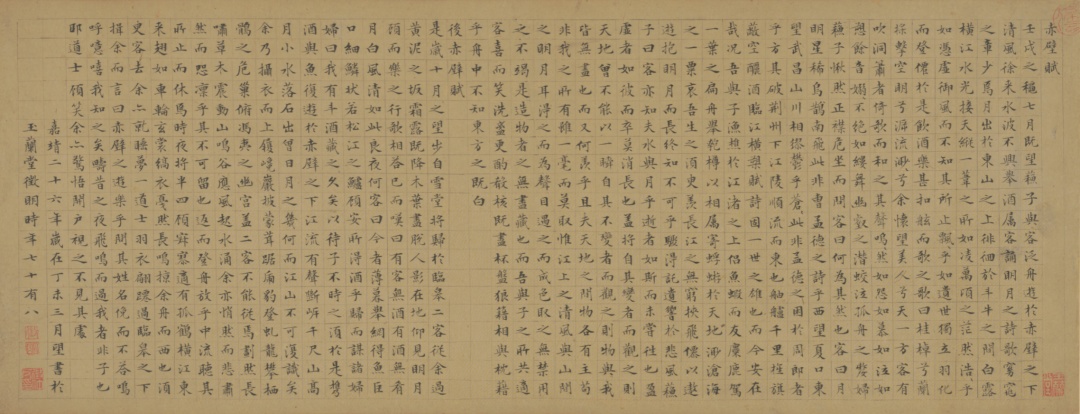 赤壁賦
壬戌之穐七月既望蘇子與客泛舟遊於赤壁之下
清風徐來水波不興舉酒属客誦明月之詩歌窈窕
之章少焉月出於東山之上徘徊於斗牛之間白露
橫江水光接天縱一葦之所如凌萬頃之茫然浩乎
如馮虛御風而不知其所止飄乎如遺世獨立羽化
而登僊於是飲酒樂甚扣舷而歌之歌曰桂棹兮蘭
槳擊空明兮泝流光渺渺兮余懷望美人兮天一方客有
吹洞簫者倚歌而和之其聲嗚嗚然如怨如慕如泣如
訴餘音嫋嫋不絕如縷舞幽壑之潛蛟泣孤舟之嫠婦
蘇子愀然正襟危坐而問客曰何為其然也客曰月
明星稀烏鵲南飛此非曹孟德之詩乎西望夏口東
望武昌山川相繆鬱乎蒼蒼此非孟德之困於周郎者
乎方其破荊州下江陵順流而東也舳艫千里旌旗
蔽空釃酒臨江橫槊賦詩固一世之雄也而今安在
哉況吾與子漁樵於江渚之上侶魚蝦而友麋鹿駕
一葉之扁舟舉匏樽以相屬寄蜉蝣於天地渺滄海
之一粟哀吾生之須臾羨長江之無窮挾飛僊以遨
遊抱明月而長終知不可乎驟得託遺響於悲風蘇
子曰客亦知夫水與月乎逝者如斯而未嘗往也盈
虛者如彼而卒莫消長也蓋將自其變者而觀之則
天地曾不能以一瞬自其不變者而觀之則物與我
皆無盡也而又何羨乎且夫天地之間物各有主苟
非我之所有雖一毫而莫取惟江上之清風與山間
之明月耳得之而為聲目遇之而成色取之無禁用
之不竭是造物者之無盡藏也而吾與子之所共適
客喜而笑洗盞更酌肴核既盡杯盤狼藉相與枕藉
乎舟中不知東方之既白
後赤壁賦
是歲十月之望步自雪堂將歸於臨皋二客從余過
黃泥之坂霜露既降木葉盡脫人影在地仰見明月
顧而樂之行歌相答已而嘆曰有客無酒有酒無肴
月白風清如此良夜何客曰今者薄暮舉網得魚巨
口細鱗狀若松江之鱸顧安所得酒乎歸而謀諸婦
婦曰我有斗酒藏之久矣以待子不時之須於是攜
酒與魚復遊於赤壁之下江流有聲斷岸千尺山高
月小水落石出曾日月之幾何而江山不可復識矣
余乃攝衣而上履巉巖披蒙茸踞虎豹登虬龍攀栖
鶻之危巢俯馮夷之幽宮蓋二客不能從焉劃然長
嘯草木震動山鳴谷應風起水涌余亦悄然而悲肅
然而恐凜乎其不可留也返而登舟放乎中流聽其
所止而休焉時夜將半四顧寂寥適有孤鶴橫江東
來翅如車輪玄裳縞衣戛然長鳴掠余舟而西也須
臾客去余亦就睡夢一道士羽衣翩躚過臨皋之下
揖余而言曰赤壁之遊樂乎問其姓名俛而不答嗚
呼噫嘻我知之矣疇昔之夜飛鳴而過我者非子也
耶道士顧笑余亦驚悟開戶視之不見其處
嘉靖二十六年歲在丁未三月望書於
玉蘭堂徵明時年七十有八